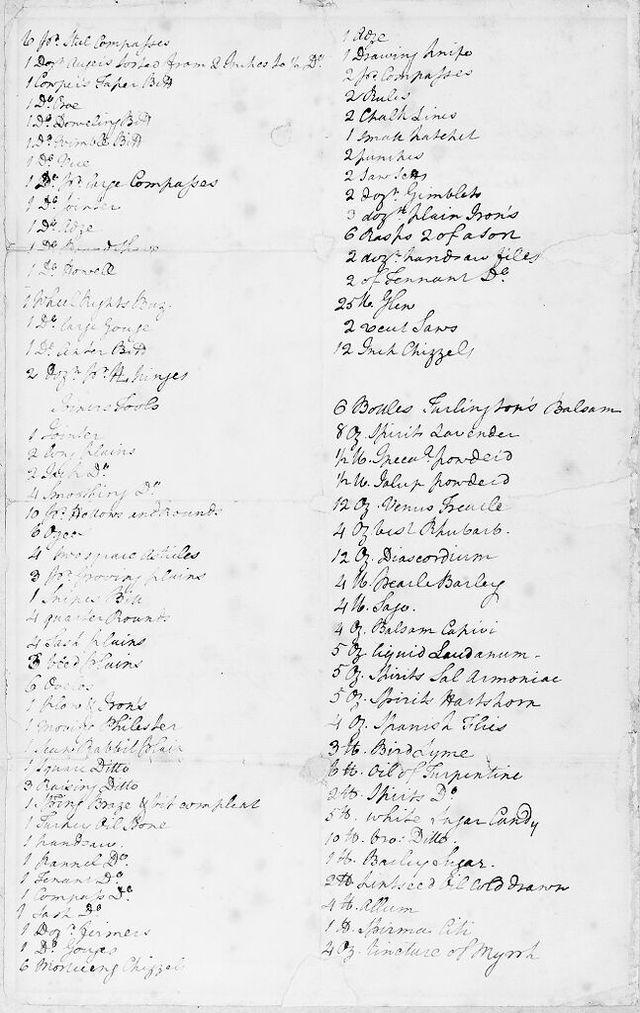 6 pr. Steel Compasses
1 Dozn Augers sorted from 2 Inches to ½ Do.
1 Cooper's Taper Bitt
1 Do. Croe
1 Do. Doweling Bitt
1 Do. Wimble Bitt
1 Do. Vice
1 Do. pr. large Compasses
1 Do. Jointer
1 Do. Adze
1 Do. Round Shave
1 Do. Howell
1 Wheel Rights Buz.
1 Do. large Gouge
1 Do. Bitt
2 Dozn. pr. H. hinges
Joiners Tools
1 Jointer
2 long plains
2 Do.
4 Smoothing Do.
10 pr. Hollows and Rounds
6 Ogees
4
3 pr. Groving plains
1 Snipes Bill
4 quarter Rounds
4 Sash plains
3 bead plains
6 Ovelos
1 plow & Irons
1 moving Philester
1 Skew Rabbit plain
1 Square Ditto
3 Raising Ditto
1 Spring Braze & bit compleat
1 Turkey Oil Stone
1 handsaw.
1 Pannel Do.
1 Tenant Do.
1 Compass Do.
1 Sash Do
1 Dozn. firmers
1 Do. Gouges
6 Morticeing Chizzels
1 Adze
1 Drawing knife
2 pr. Compasses
2 Rules
2 Chalk Lines
1 small hatchet
2 punches
2 Saw Setts
2 dozn. Gimblets
3 dozn. plain Iron's
6 Rasps 2 of a sort
2 dozn. handsaw files
2 of Tennant Do.
25 lb. Glew
2 Saws
12 Inch Chizzels
6 Botles Turlington's Balsam
8 Oz. Spirits Lavender
½ lb. Ipecaa. powderd
½ lb. Jalup powderd
12 Oz. Venus Treacle
4 Oz best Rhubarb.
12 Oz. Diascordium
4 lb. Pearle Barley
4 lb. Sago.
4 Oz. Balsam Capivi
5 Oz liquid Laudanum.
5 Oz. Spirits Sal Armoniac
5 Oz. Spirits Hartshorn
4 Oz. Spanish Flies
3 lb. Birdlyme
6 lb. Oil of Turpentine
2 lb. Spirits Do.
5 lb. white Sugar Candy
10 lb. bro: Ditto.
1 lb. Barley Sugar.
2 lb Lintseed Oil Cold drawn
4 lb. Allum
1 lb. Spirma Citi
4 Oz. tincture of Myrrh